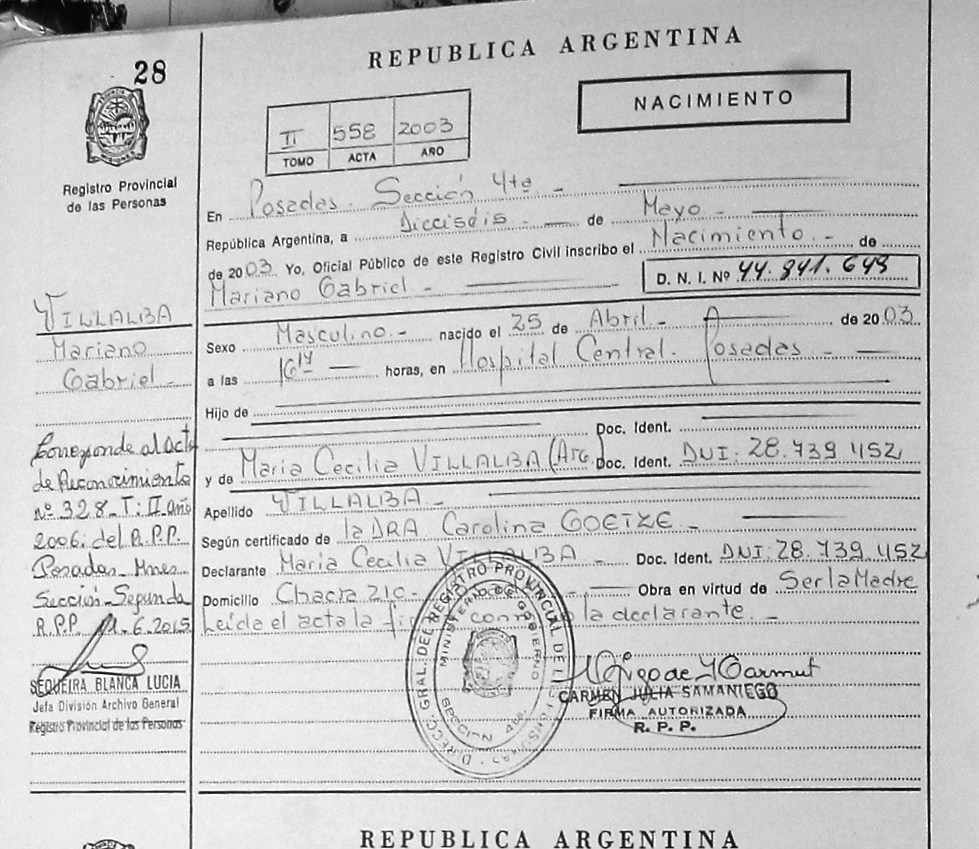 REPUBLICA ARGENTINA
28
NACIMIENTO
II 558 2003
TOMO ACTA AÑO
Registro Provincial
de las Personas
En Posadas. Sección 4ta -
República Argentina, a Dieciséis - de Mayo -
de 2003 Yo, Oficial Público de este Registro Civil inscribo el Nacimiento - de
Mariano Gabriel - D. N. I. Nº 44.841.649
VILLALBA
Mariano
Gabriel -
Sexo Masculino - nacido el 25 de Abril - de 2003
a las 16 14 horas, en Hospital Central. Posadas -
Hijo de
Doc. Ident.
y de Maria Cecilia VILLALBA (Arg.) Doc. Ident. DNI: 28.739 452
Apellido VILLALBA -
Según certificado de la DRA Carolina GOETZE -
Declarante Maria Cecilia VILLALBA - Doc. Ident. DNI: 28.739.452
Domicilio Chacra 210 - Obra en virtud de Ser la Madre
Leída el acta la la declarante. -
Corresponde al Acta
de Reconocimiento
Nº 328 - T: II Año
2006. del R.P.P.
Posadas - Mnes
Sección - Segunda
R.P.P. 11.6.2015
SEQUEIRA BLANCA LUCIA
Jefa División Archivo General
Registro Provincial de las Personas
DIRECC. GRAL. DEL REGISTRO PROVINCIAL DE
MINISTERIO DE GOBIERNO
SECCION 4ta.
CARMEN JULIA SAMANIEGO
FIRMA AUTORIZADA
R. P. P.
REPUBLICA ARGENTINA